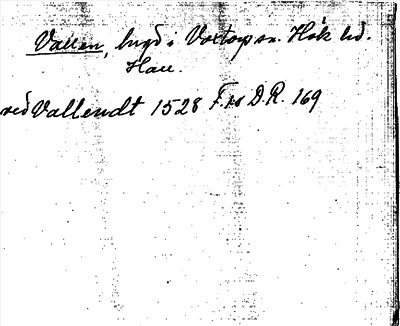 Vallen, bygd i Voxtorps sn. Hök hd.
Hall.
ved Vallendt 1528 F. Is D. R. 169